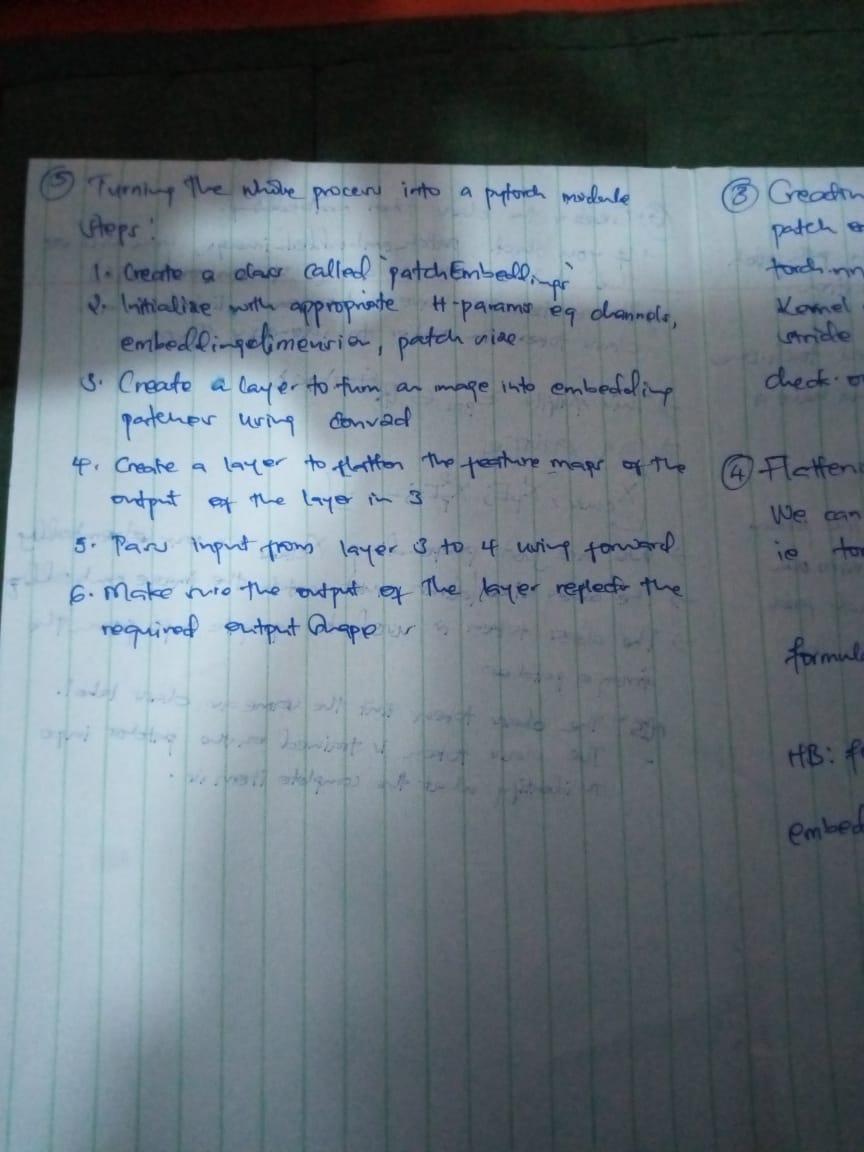 ⑤ Turning the whole process into a pytorch module
Steps:
1. Create a class called `patchEmbeddings`
2. Initialize with appropriate H-params eg channels,
embedding dimension, patch size
3. Create a layer to turn an image into embedding
patches using Conv2d
4. Create a layer to flatten the feature maps of the
output of the layer in 3
5. Pass input from layer 3 to 4 using forward
6. Make sure the output of the layer reflects the
required output shape
③ Creatin
patch e
torch.nn
Kernel
stride
check o
④ Flatten
We can
ie tor
formula
HB: f
embed